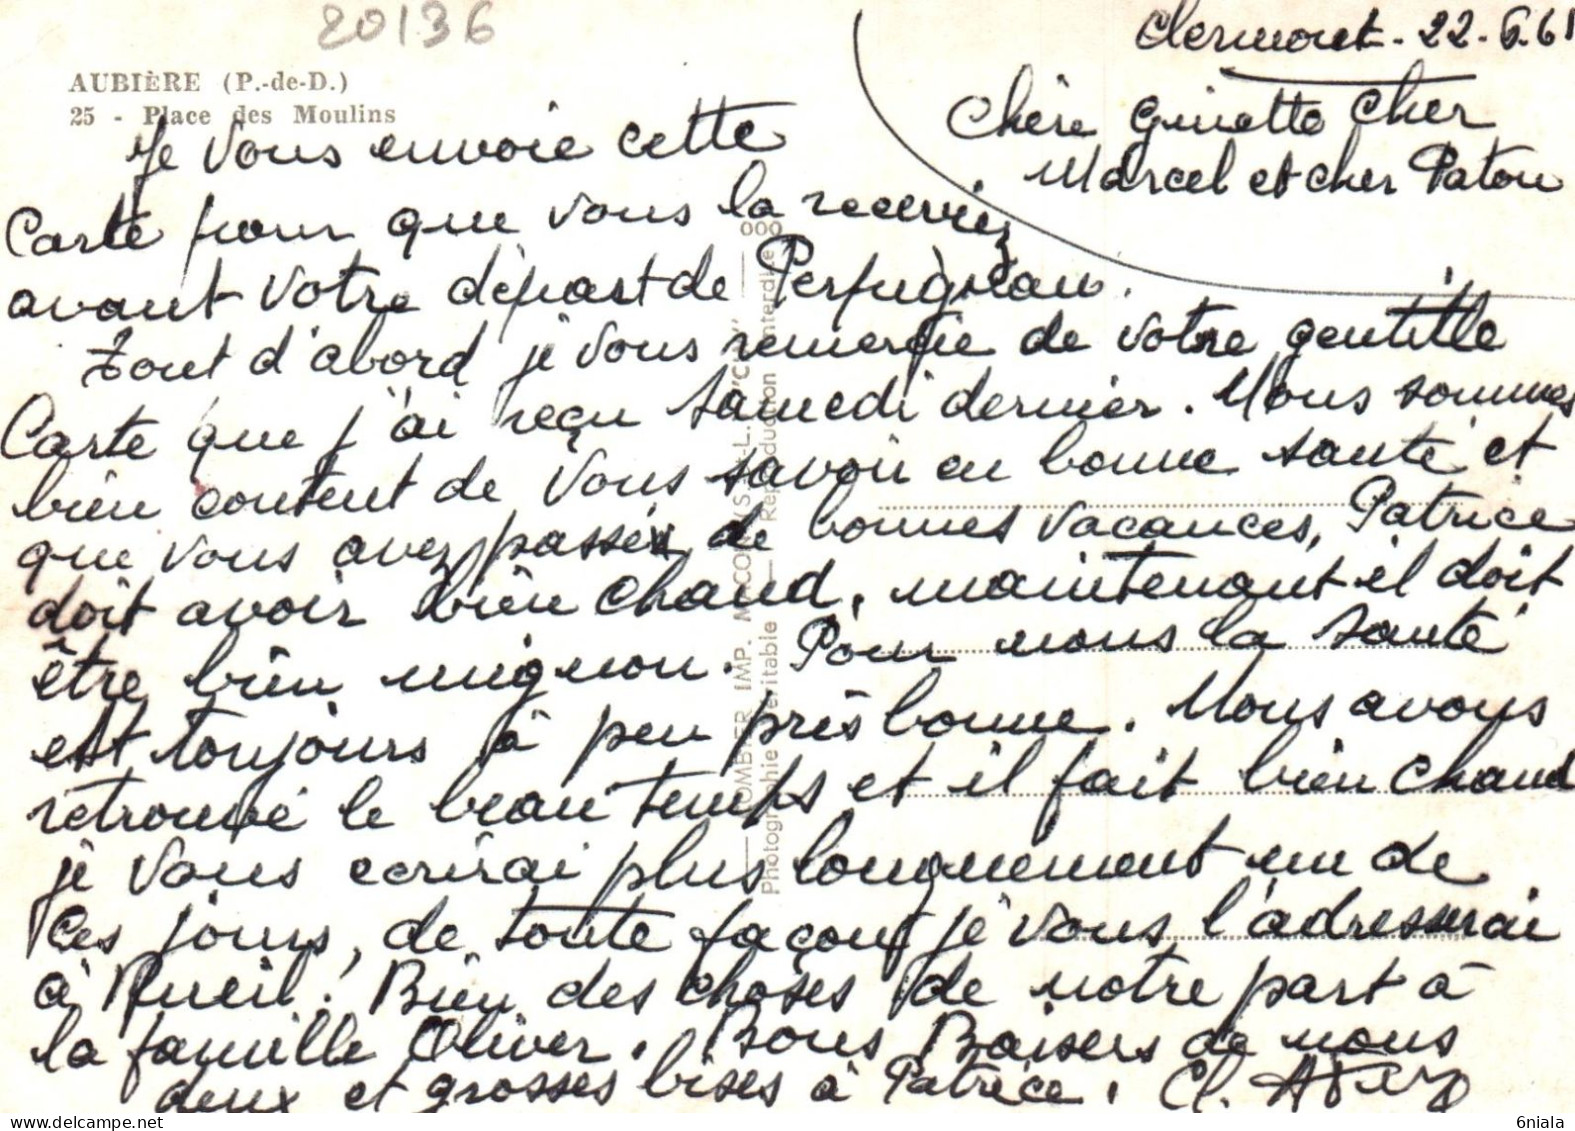 20136
AUBIÈRE (P.-de-D.)
25 - Place des Moulins
Clermont - 22.6.61
Chère Ginette Cher
Marcel et cher Patou
Je vous envoie cette
Carte pour que vous la receviez
avant votre départ de Perpignan.
Tout d'abord je vous remercie de votre gentille
Carte que j'ai reçu samedi dernier. Nous sommes
bien content de vous savoir en bonne santé et
que vous avez passé de bonnes vacances, Patrice
doit avoir bien chaud, maintenant il doit
être bien mignon. Pour nous la santé
est toujours à peu près bonne. Nous avons
retrouvé le beau temps et il fait bien chaud
je vous ecrirai plus longuement un de
Ces jours, de toute façon je vous l'adresserai
à Rueil. Bien des choses de notre part à
la famille Oliver. Bons Baisers de nous
deux et grosses bises à Patrice. Cl.
COMBIER IMP. MACON (S.-&-L.) "CIM"
Photographie véritable — Reproduction interdite
6niala